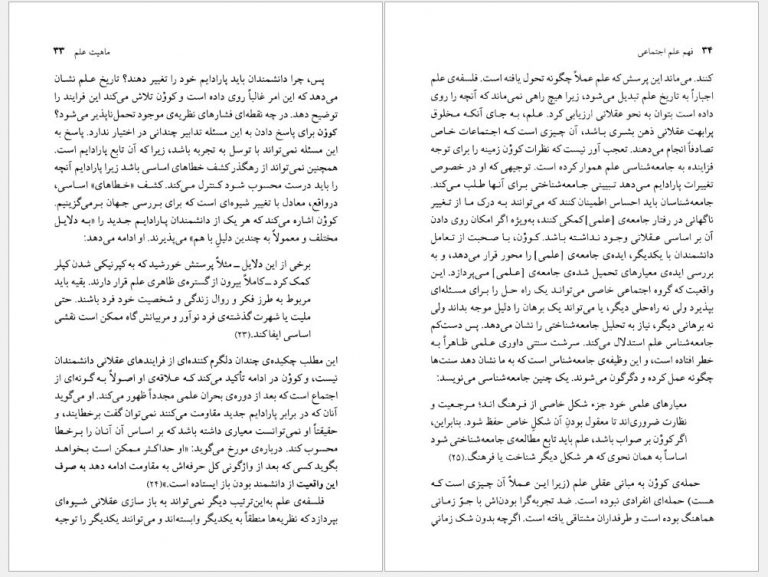 ماهیت علم ۳۳
پس، چرا دانشمندان باید پارادایم خود را تغییر دهند؟ تاریخ علم نشان
می‌دهد که این امر غالباً روی داده است و کوؤن تلاش می‌کند این فرایند را
توضیح دهد. در چه نقطه‌ای فشارهای نظریه‌ی موجود تحمل‌ناپذیر می‌شود؟
کوؤن برای پاسخ دادن به این مسئله تدابیر چندانی در اختیار ندارد. پاسخ به
این مسئله نمی‌تواند با توسل به تجربه باشد، زیرا که آن تابع پارادایم است.
همچنین نمی‌تواند از رهگذر کشف خطاهای اساسی باشد زیرا پارادایم آنچه
را باید درست محسوب شود کنترل می‌کند. کشف «خطاهای» اساسی،
درواقع، معادل با تغییر شیوه‌ای است که برای بررسی جهان برمی‌گزینیم.
کوؤن اشاره می‌کند که هر یک از دانشمندان پارادایم جدید را «به دلایل
مختلف و معمولاً به چندین دلیلِ با هم» می‌پذیرند. او ادامه می‌دهد:
برخی از این دلایل ــ مثلاً پرستش خورشید که به کپرنیکی شدن کپلر
کمک کرد ــ کاملاً بیرون از گستره‌ی ظاهری علم قرار دارند. بقیه باید
مربوط به طرز فکر و روال زندگی و شخصیت خود فرد باشند. حتی
ملیت یا شهرت گذشته‌ی فرد نوآور و مربیانش گاه ممکن است نقشی
اساسی ایفا کند. (۲۳)
این مطلب چکیده‌ی چندان دلگرم کننده‌ای از فرایندهای عقلانی دانشمندان
نیست، و کوؤن در ادامه تأکید می‌کند که علاقه‌ی او اصولاً به گونه‌ای از
اجتماع است که بعد از دوره‌ی بحران علمی مجدداً ظهور می‌کند. او می‌گوید
آنان که در برابر پارادایم جدید مقاومت می‌کنند نمی‌توان گفت برخطایند، و
حقیقتاً او نمی‌توانست معیاری داشته باشد که بر اساس آن آنان را برخطا
محسوب کند. درباره‌ی مورخ می‌گوید: «او حداکثر ممکن است بخواهد
بگوید کسی که بعد از واژگونی کل حرفه‌اش به مقاومت ادامه دهد به صرف
این واقعیت از دانشمند بودن باز ایستاده است.»(۲۴)
فلسفه‌ی علم به‌این‌ترتیب دیگر نمی‌تواند به باز سازی عقلانی شیوه‌ای
بپردازد که نظریه‌ها منطقاً به یکدیگر وابسته‌اند و می‌توانند یکدیگر را توجیه
۳۴ فهم علم اجتماعی
کنند. می‌ماند این پرسش که علم عملاً چگونه تحول یافته است. فلسفه‌ی علم
اجباراً به تاریخ علم تبدیل می‌شود، زیرا هیچ راهی نمی‌ماند که آنچه را روی
داده است بتوان به نحو عقلانی ارزیابی کرد. علم، به جای آنکه مخلوق
پرابهت عقلانی ذهن بشری باشد، آن چیزی است که اجتماعات خاص
تصادفاً انجام می‌دهند. تعجب آور نیست که نظرات کوؤن زمینه را برای توجه
فزاینده به جامعه‌شناسی علم هموار کرده است. توجیهی که او در خصوص
تغییرات پارادایم می‌دهد تبیینی جامعه‌شناختی برای آنها طلب می‌کند.
جامعه‌شناسان باید احساس اطمینان کنند که می‌توانند به درک ما از تغییر
ناگهانی در رفتار جامعه‌ی [علمی] کمکی کنند، به‌ویژه اگر امکان روی دادن
آن بر اساسی عقلانی وجود نداشته باشد. کوؤن، با صحبت از تعامل
دانشمندان با یکدیگر، ایده‌ی جامعه‌ی [علمی] را محور قرار می‌دهد، و به
بررسی ایده‌ی معیارهای تحمیل شده‌ی جامعه‌ی [علمی] می‌پردازد. این
واقعیت که گروه اجتماعی خاصی می‌تواند یک راه حل را برای مسئله‌ای
بپذیرد ولی نه راه‌حلی دیگر، یا می‌تواند یک برهان را دلیل موجه بداند ولی
نه برهانی دیگر، نیاز به تحلیل جامعه‌شناختی را نشان می‌دهد. پس دست‌کم
جامعه‌شناس علم استدلال می‌کند. سرشت سنتی داوری علمی ظاهراً به
خطر افتاده است، و این وظیفه‌ی جامعه‌شناس است که به ما نشان دهد سنت‌ها
چگونه عمل کرده و دگرگون می‌شوند. یک چنین جامعه‌شناسی می‌نویسد:
معیارهای علمی خود جزء شکل خاصی از فرهنگ اند؛ مرجعیت و
نظارت ضروری‌اند تا معقول بودنِ آن شکلِ خاص حفظ شود. بنابراین،
اگر کوؤن بر صواب باشد، علم باید تابع مطالعه‌ی جامعه‌شناختی شود
اساساً به همان نحوی که هر شکل دیگر شناخت یا فرهنگ. (۲۵)
حمله‌ی کوؤن به مبانی عقلی علم (زیرا این عملاً آن چیزی است که
هست) حمله‌ای انفرادی نبوده است. ضد تجربه‌گرا بودن‌اش با جوّ زمانی
هماهنگ بوده است و طرفداران مشتاقی یافته است. اگرچه بدون شک زمانی